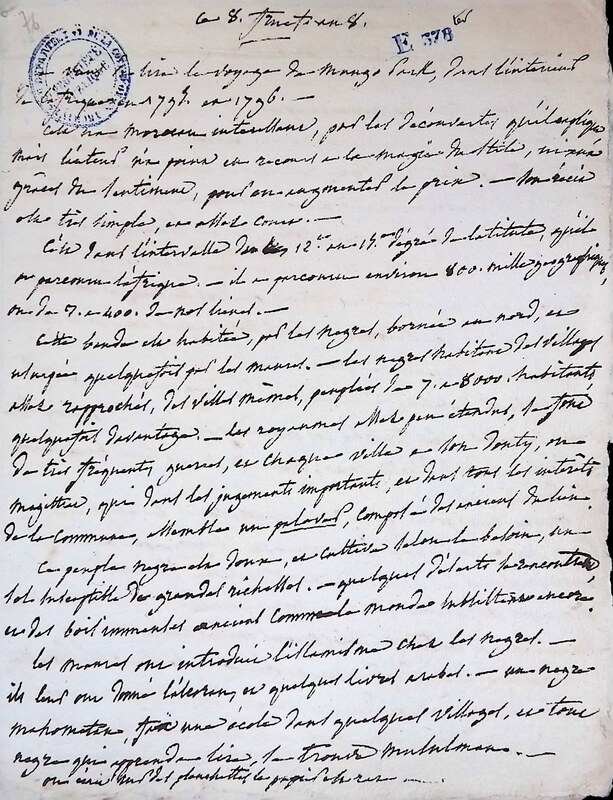 76
ce 8. fructi. an 8.
E 378 ter
lire le voyage de Mungo Park, dans l'intérieur
de l'afrique en 1795. en 1796. —
C'est un morceau intéressant, par les découvertes qu'il explique
mais l'auteur n'a point eu recours a la magie du stile, ni aux
grâces du sentiment, pour en augmenter le prix. — Son récit
est très simple, et assez court. —
C'est dans l'intervalle du 12e au 15e dégré de latitude, qu'il
a parcouru l'afrique. — il a parcouru environ 800. mille géografiques,
ou de 3. a 400. de nos lieues. —
Cette bande est habitée, par les negres, bornée au nord, et
usurpée quelquefois par les maures. — les negres habitent des villages
assez rapprochés, des villes mêmes, peuplées de 7. a 8000. habitants
quelquefois davantage — les royaumes assez peu étendus, se font
de très fréquentes guerres, et chaque ville a son douty, ou
magistrat, qui dans les jugements importants, et dans tous les intérêts
de la commune, assemble un palaver, composé des anciens du lieu.
Ce peuple negre est doux, et cultive selon le besoin, un
sol susceptible de grandes richesses. — quelques déserts se rencontrent,
et des bois immenses anciens comme le monde subsistent encore.
les maures ont introduit l'islamisme chez les negres. —
ils leur ont donné l'alcoran, et quelques livres arabes. — un negre
mahometan, fait une école dans quelques villages, et tout
negre qui apprend a lire, se trouve musulman. —
on écrit sur des planchettes le papier est rare —